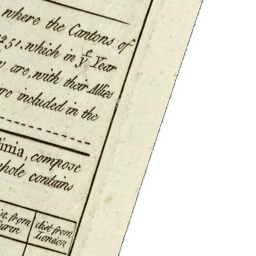 where the Cantons of
251, which in yᵉ Year
are, with their Allies
re included in the
inia, compose
whole contains
ist. from dist. from
urin London